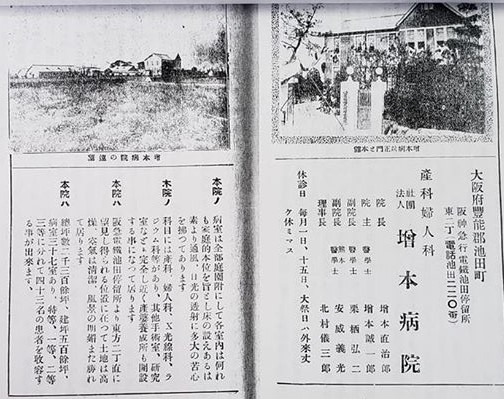 大阪府豐能郡池田町
阪神急行電鐵池田停留所
東二丁(電話池田二二〇番)
社團
法人
增本病院
產科婦人科
院長
醫學士
增本直治郎
院主
醫學士
增本誠一郎
副院長
醫學士
栗栖弘二
副院長
熊本
醫學士
安威義光
理事長
北村儀三郎
休診日 每月一日、十五日、大祭日(外來丈
ケ休ミマス
增本病院正門と本館
增本病院の遠望
本院ノ 病室は全部庭園附にして各室內は何れ
も家庭的本位を旨とし床の設えあるは
素より通風、日光の透射に多大の苦心
を拂つてあります
本院ノ 科目には產科、婦人科、X光線科、ラ
ジウム科等があり、其他手術室、硏究
室なども完全し近く產婆養成所も開設
する事になつて居ります
本院ハ 阪急電鐵池田停留所より東方二丁直に
望見し得られる位置に在つて土地は高
燥、空氣は清潔、風景の明媚また勝れ
て居ります
本院ハ 總坪數二千三百餘坪、建坪五百餘坪、
病室三十七室あり、特等、一等、二等
三等に分れて四十三名の患者を收容す
る事が出來ます、